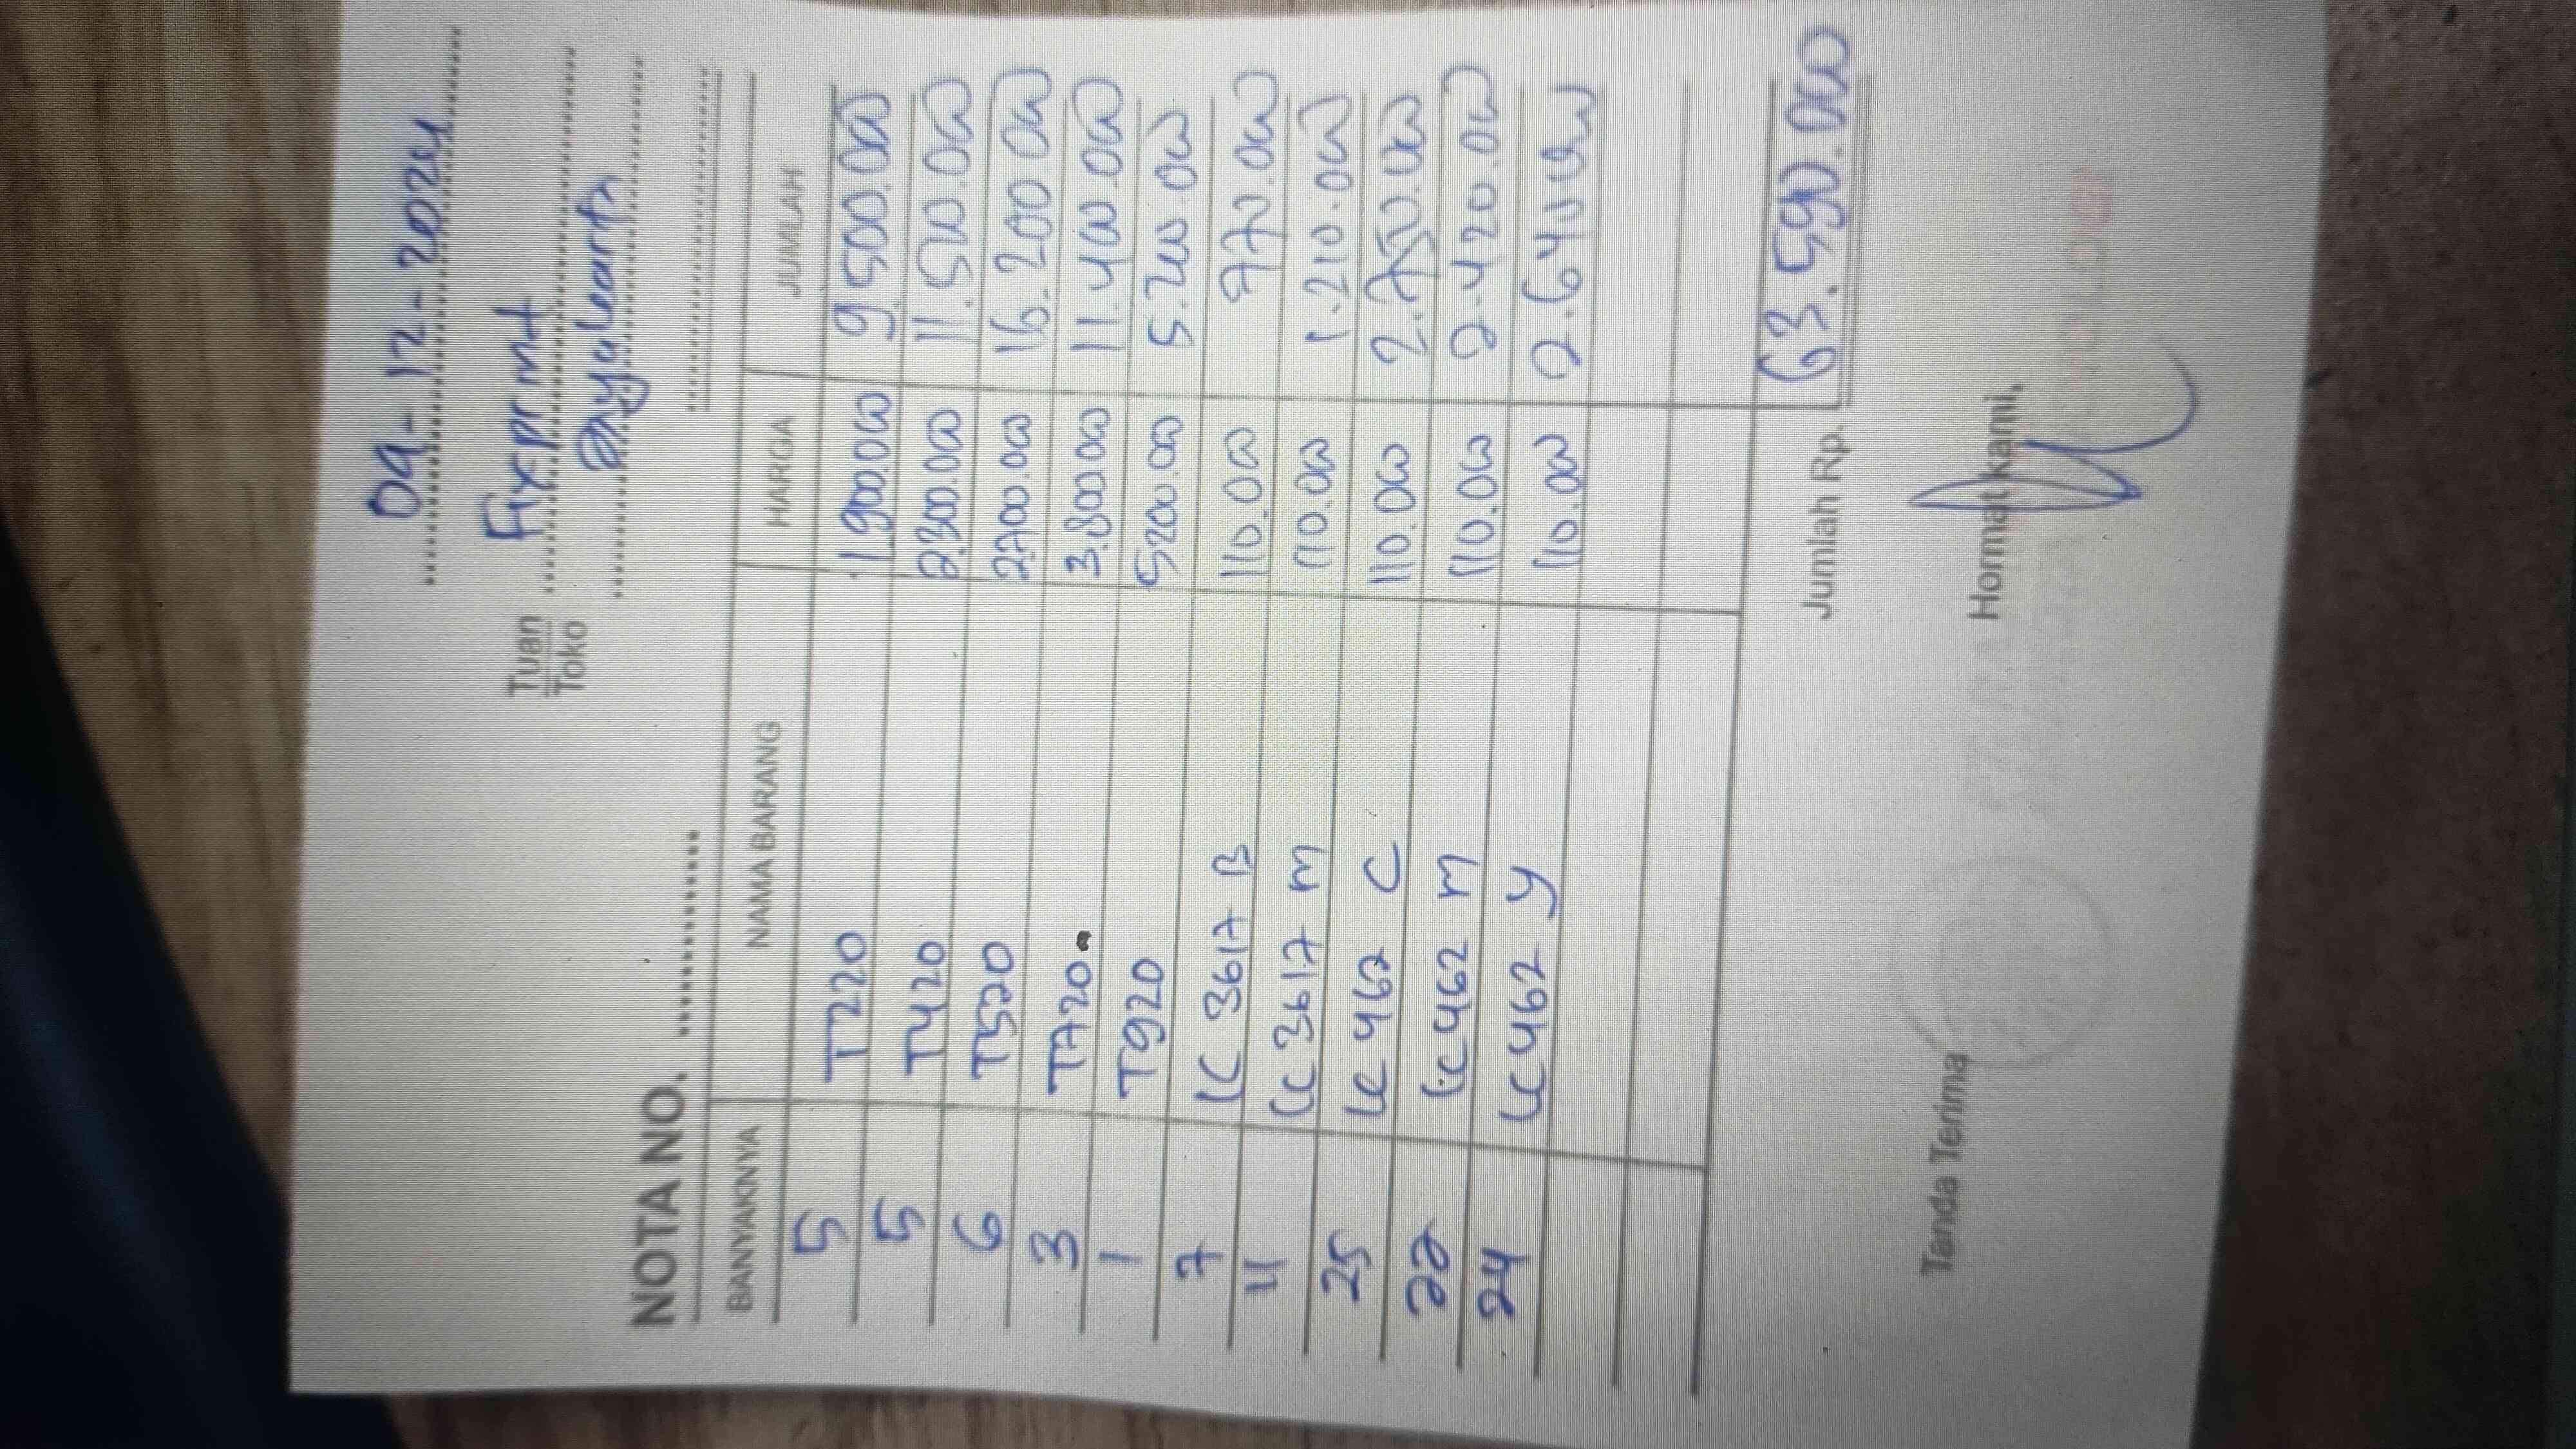 09-12-2024
Tuan Fixprint
Toko
NOTA NO. ............
BANYAKNYA NAMA BARANG HARGA JUMLAH
5 T220 1.900.000 9.500.000
5 T420 2.300.000 11.500.000
6 T520 2.700.000 16.200.000
3 T720 3.800.000 11.400.000
1 T920 5.200.000 5.200.000
7 IC 3617 B 110.000 770.000
11 IC 3617 m 110.000 1.210.000
25 IC 462 C 110.000 2.750.000
22 IC 462 M 110.000 2.420.000
24 IC 462 y 110.000 2.640.000
Jumlah Rp. 63.590.000
Tanda Terima Hormat kami,